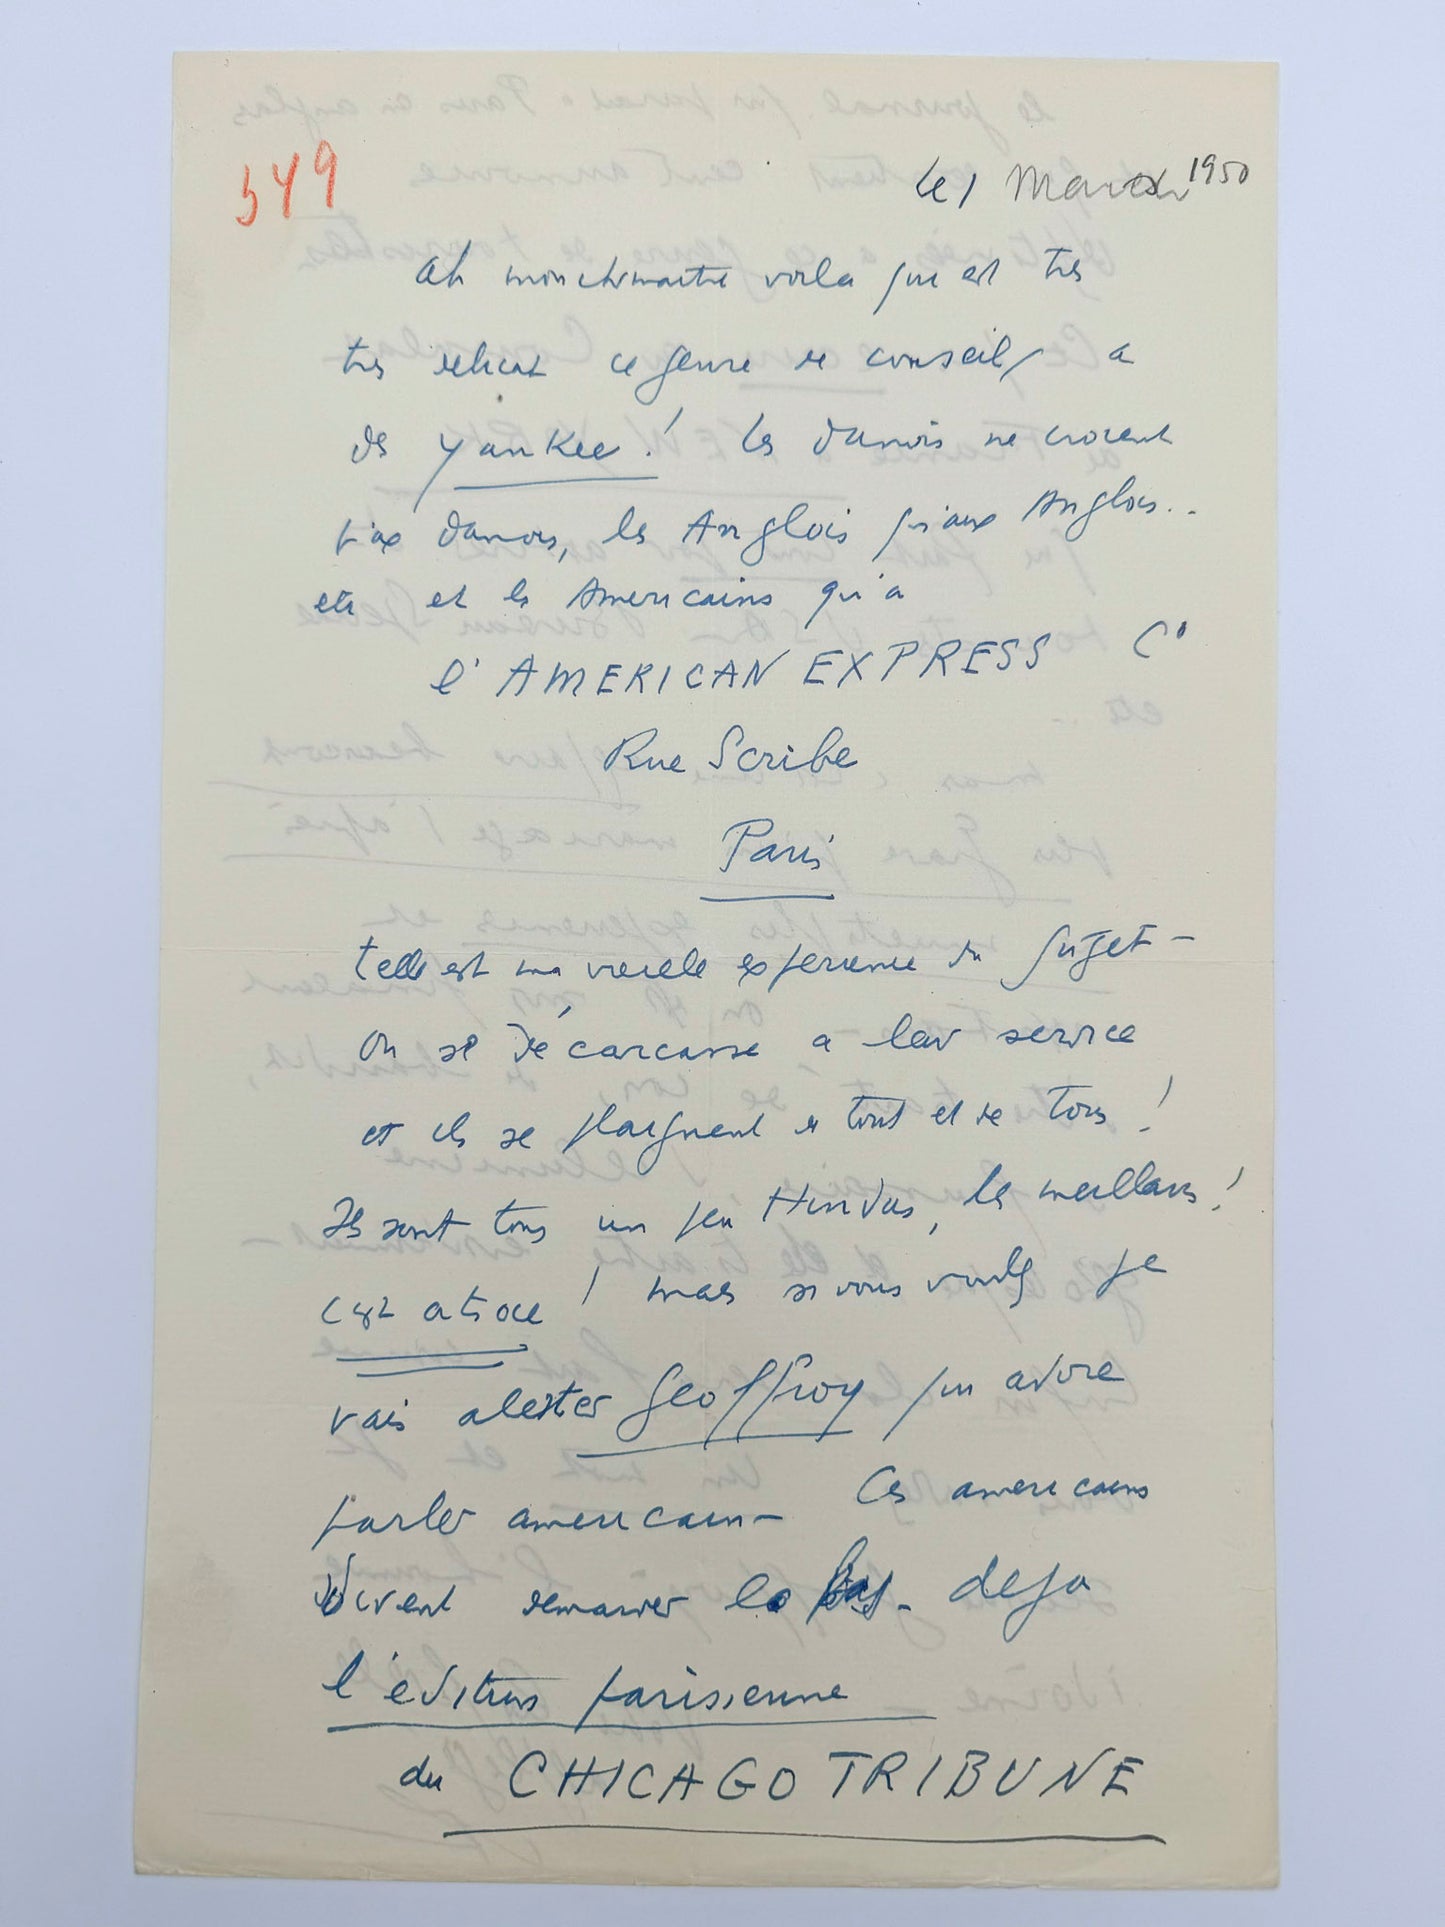 549
le 1 Mars 1950
Ah mon ch maitre voila qui est tres
tres delicat ce genre de conseils a
des Yankee ! les danois ne croient
qu'aux danois, les Anglois qu'aux Anglois..
etc et les Americains qu'a
l'AMERICAN EXPRESS Co
Rue Scribe
Paris
telle est ma vieille experience du sujet -
On se décarcasse a leur service
et ils se plaignent de tout et de tous !
Ils sont tous un peu Hindus, les meilleurs !
c'est atroce ! mais si vous voulez je
vais alerter Geoffroy qui adore
parler americain - Ces americains
doivent demander là bas - deja
l'edition parisienne
du CHICAGO TRIBUNE